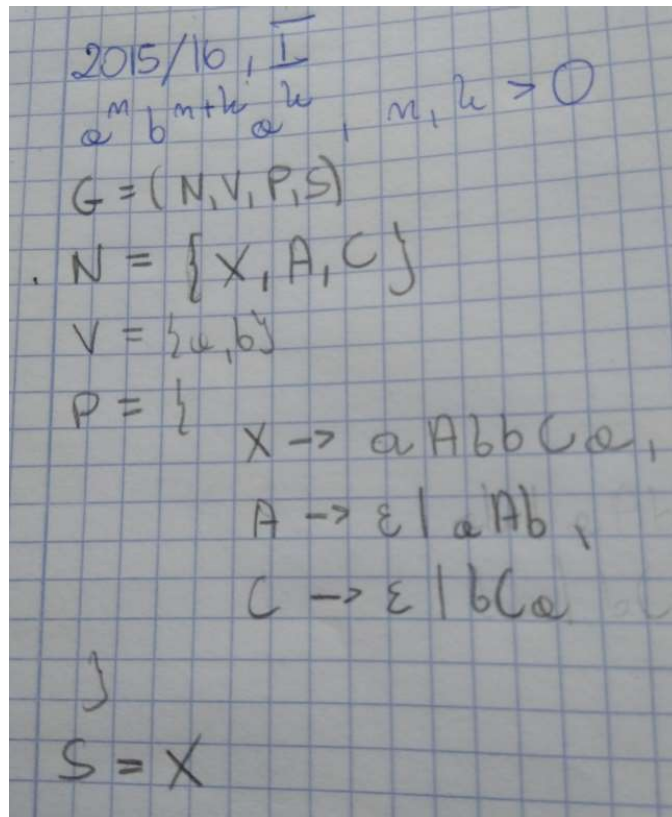 2015/16, I
a^n b^{n+k} a^k, n, k > 0
G = (N, V, P, S)
N = {X, A, C}
V = {a, b}
P = {
X -> aAbbCa,
A -> ε | aAb,
C -> ε | bCa
}
S = X